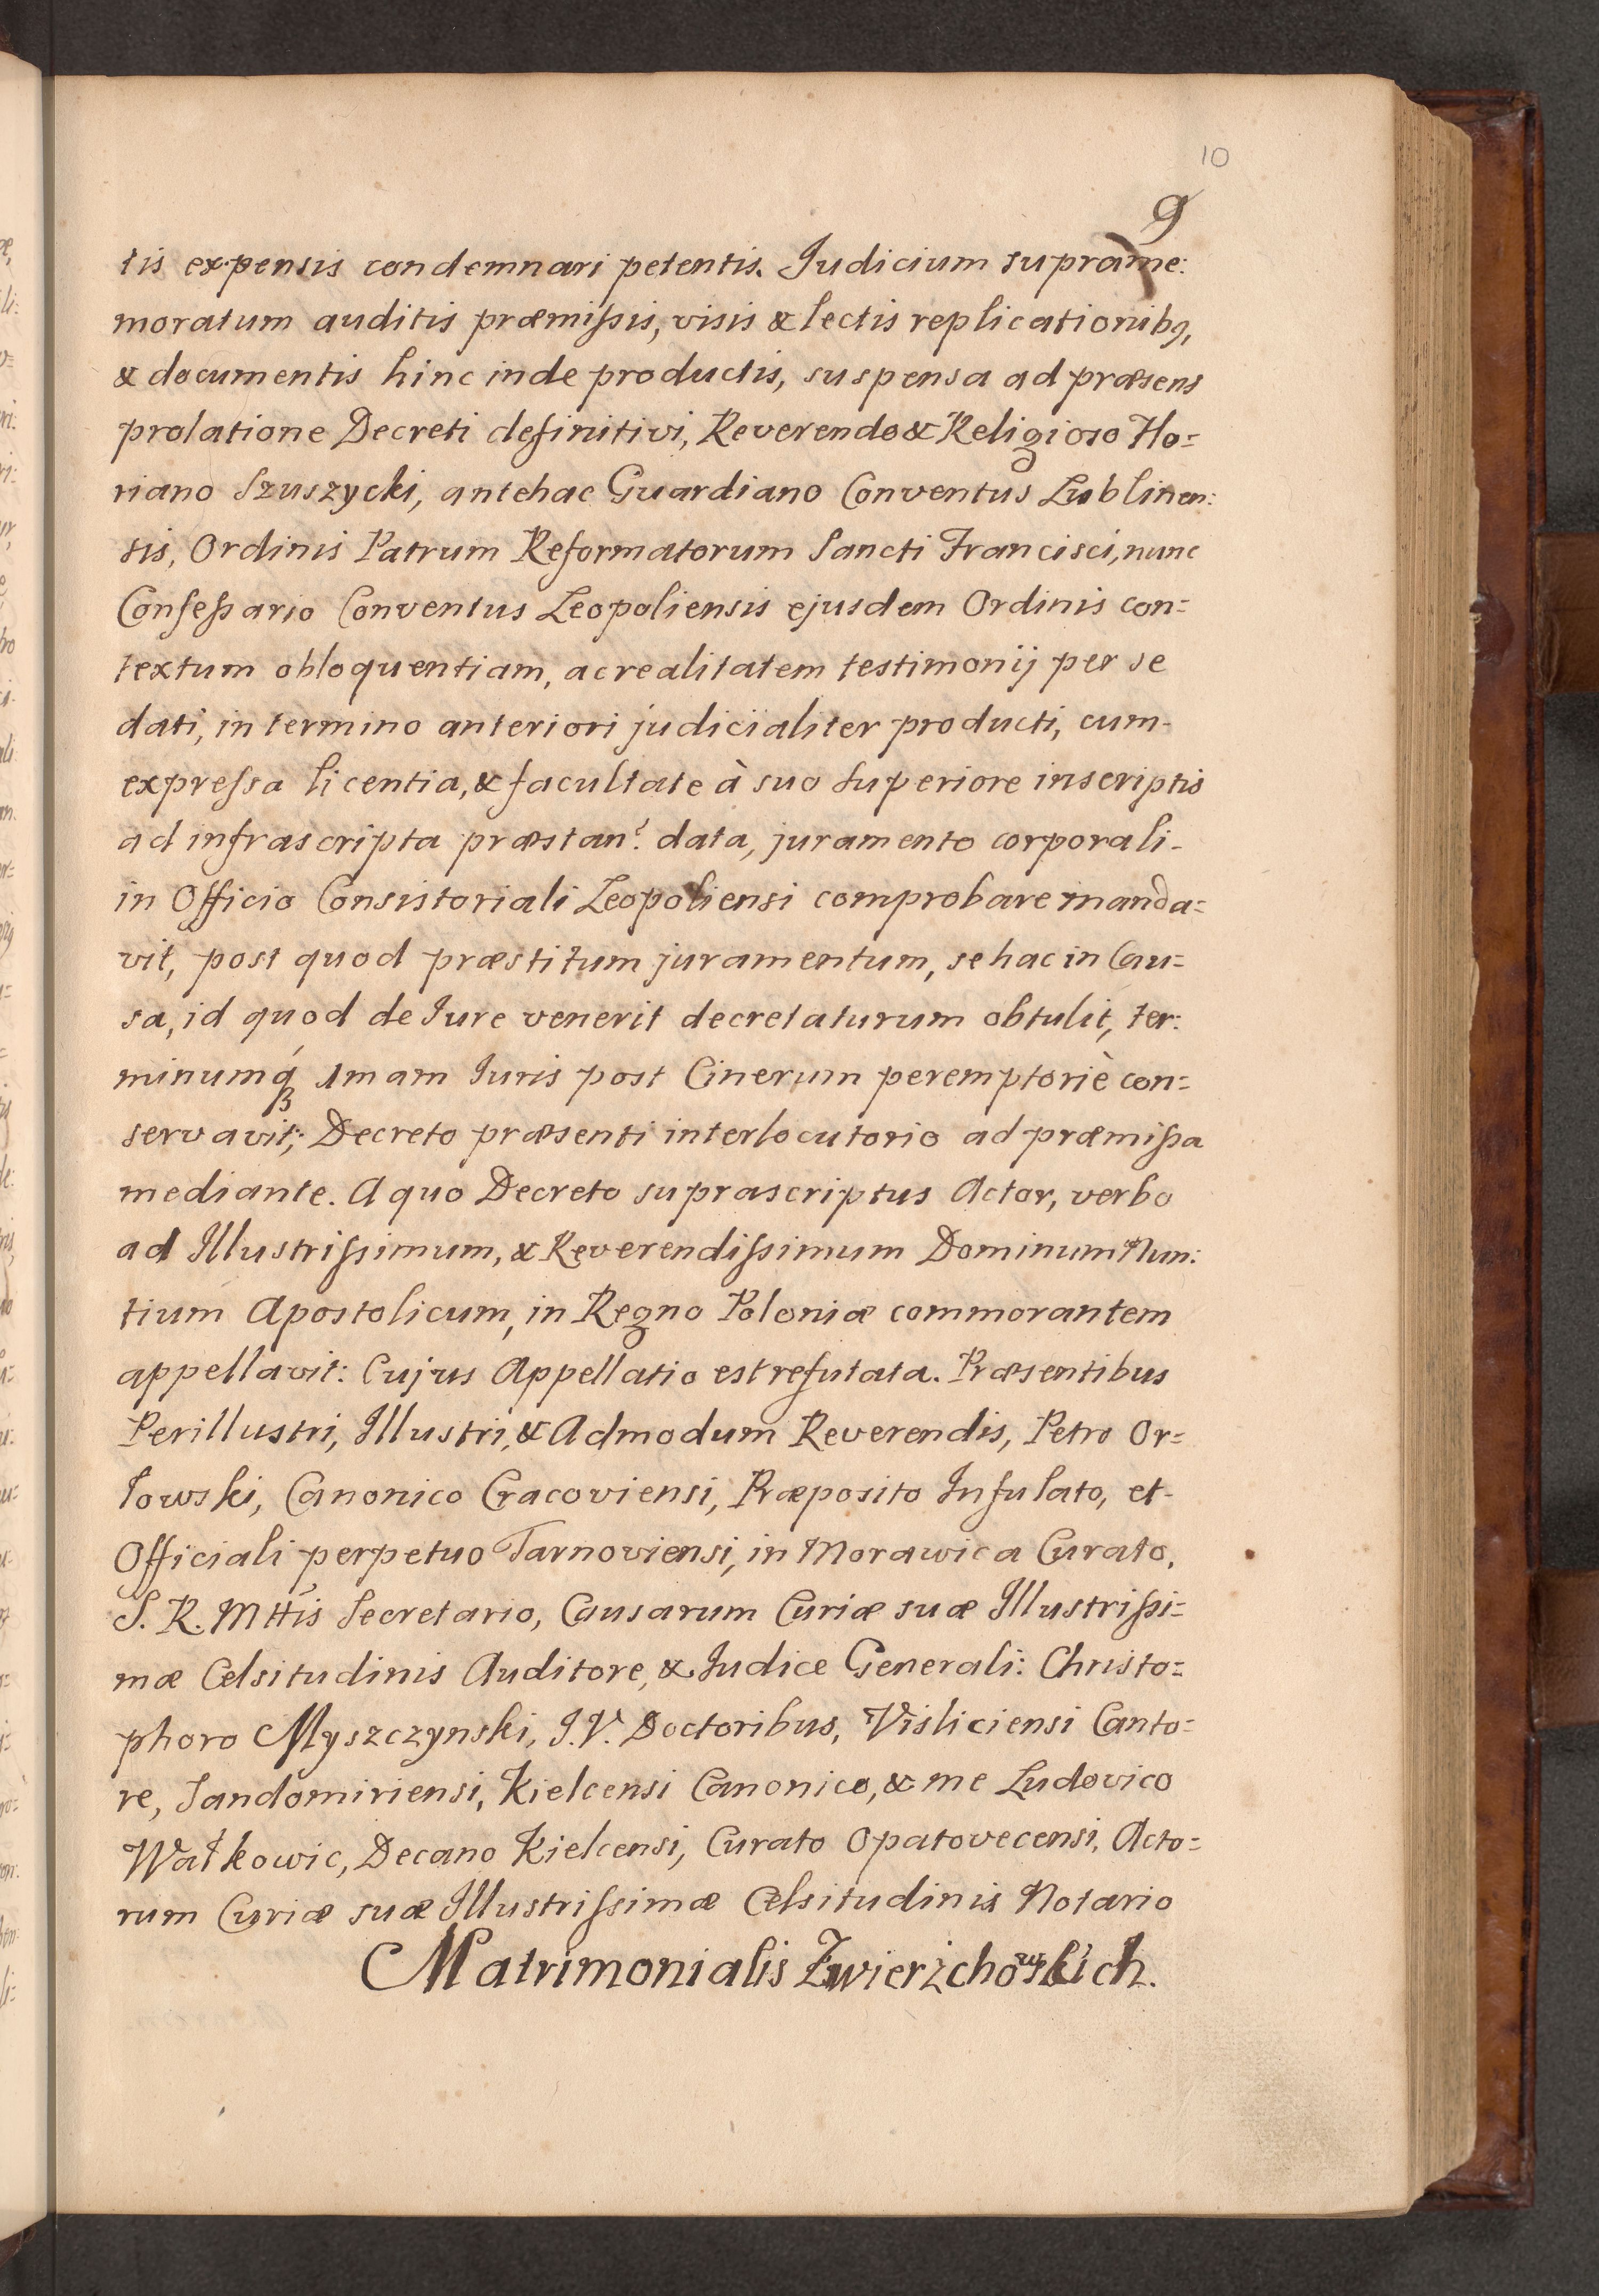 10
9
tis expensis condemnari petentis. Judicium suprame:
moratum auditis præmissis, visis & lectis replicationibq,
& documentis hinc inde productis, suspensa ad præsens
prolatione Decreti definitivi, Reverendo & Religioso Flo=
riano Szuszycki, antehac Guardiano Conventus Lublinen:
sis, Ordinis Patrum Reformatorum Sancti Francisci, nunc
Confessario Conventus Leopoliensis ejusdem Ordinis con=
textum obloquentiam, ac realitatem testimonij per se
dati, in termino anteriori judicialiter producti, cum-
expressa licentia, & facultate à suo Superiore in scriptis
ad infrascripta præstan? data, juramento corporali-
in Officio Consistoriali Leopoliensi comprobare manda=
vit, post quod præstitum juramentum, se hac in Cau=
sa, id quod de Jure venerit decretaturum obtulit, ter:
minumq́ 1mam Juris post Cinerum peremptoriè con=
servavit; Decreto præsenti interlocutorio ad præmissa
mediante. A quo Decreto suprascriptus Actor, verbo
ad Illustrissimum, & Reverendissimum Dominum Nun:
tium Apostolicum, in Regno Poloniæ commorantem
appellavit: Cujus Appellatio est refutata. Præsentibus
Perillustri, Illustri, & Admodum Reverendis, Petro Or=
łowski, Canonico Cracoviensi, Præposito Infulato, et-
Officiali perpetuo Tarnoviensi, in Morawica Curato,
S. R. Mttis Secretario, Causarum Curiæ suæ Illustrissi=
mæ Celsitudinis Auditore, & Judice Generali: Christo=
phoro Myszczynski, J. V. Doctoribus, Visliciensi Canto=
re, Sandomiriensi, Kielcensi Canonico, & me Ludovico
Wałkowic, Decano Kielcensi, Curato Opatovecensi, Acto=
rum Curiæ suæ Illustrissimæ Celsitudinis Notario
Matrimonialis Zwierżchowskich.